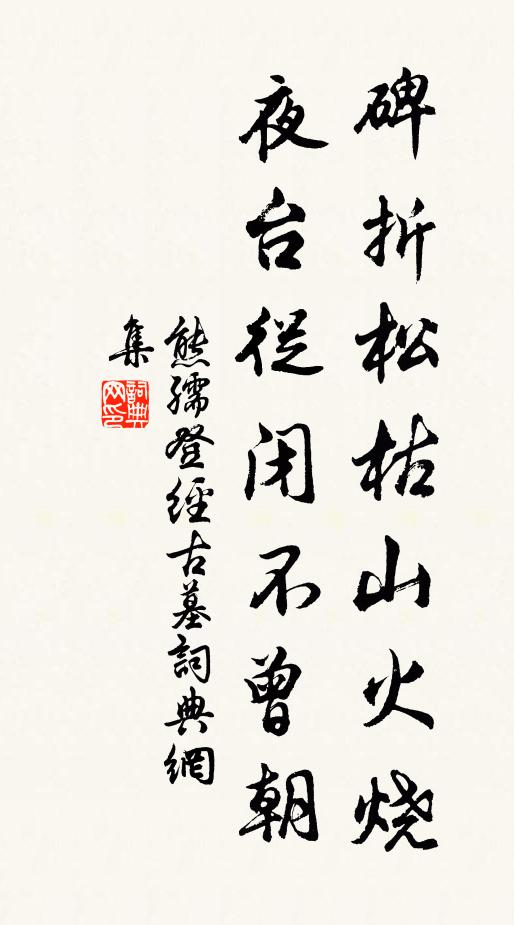 碑折松枯山火烧
夜台從闭不曾朝
熊孺登經古墓詞典網
集
詞典
网印